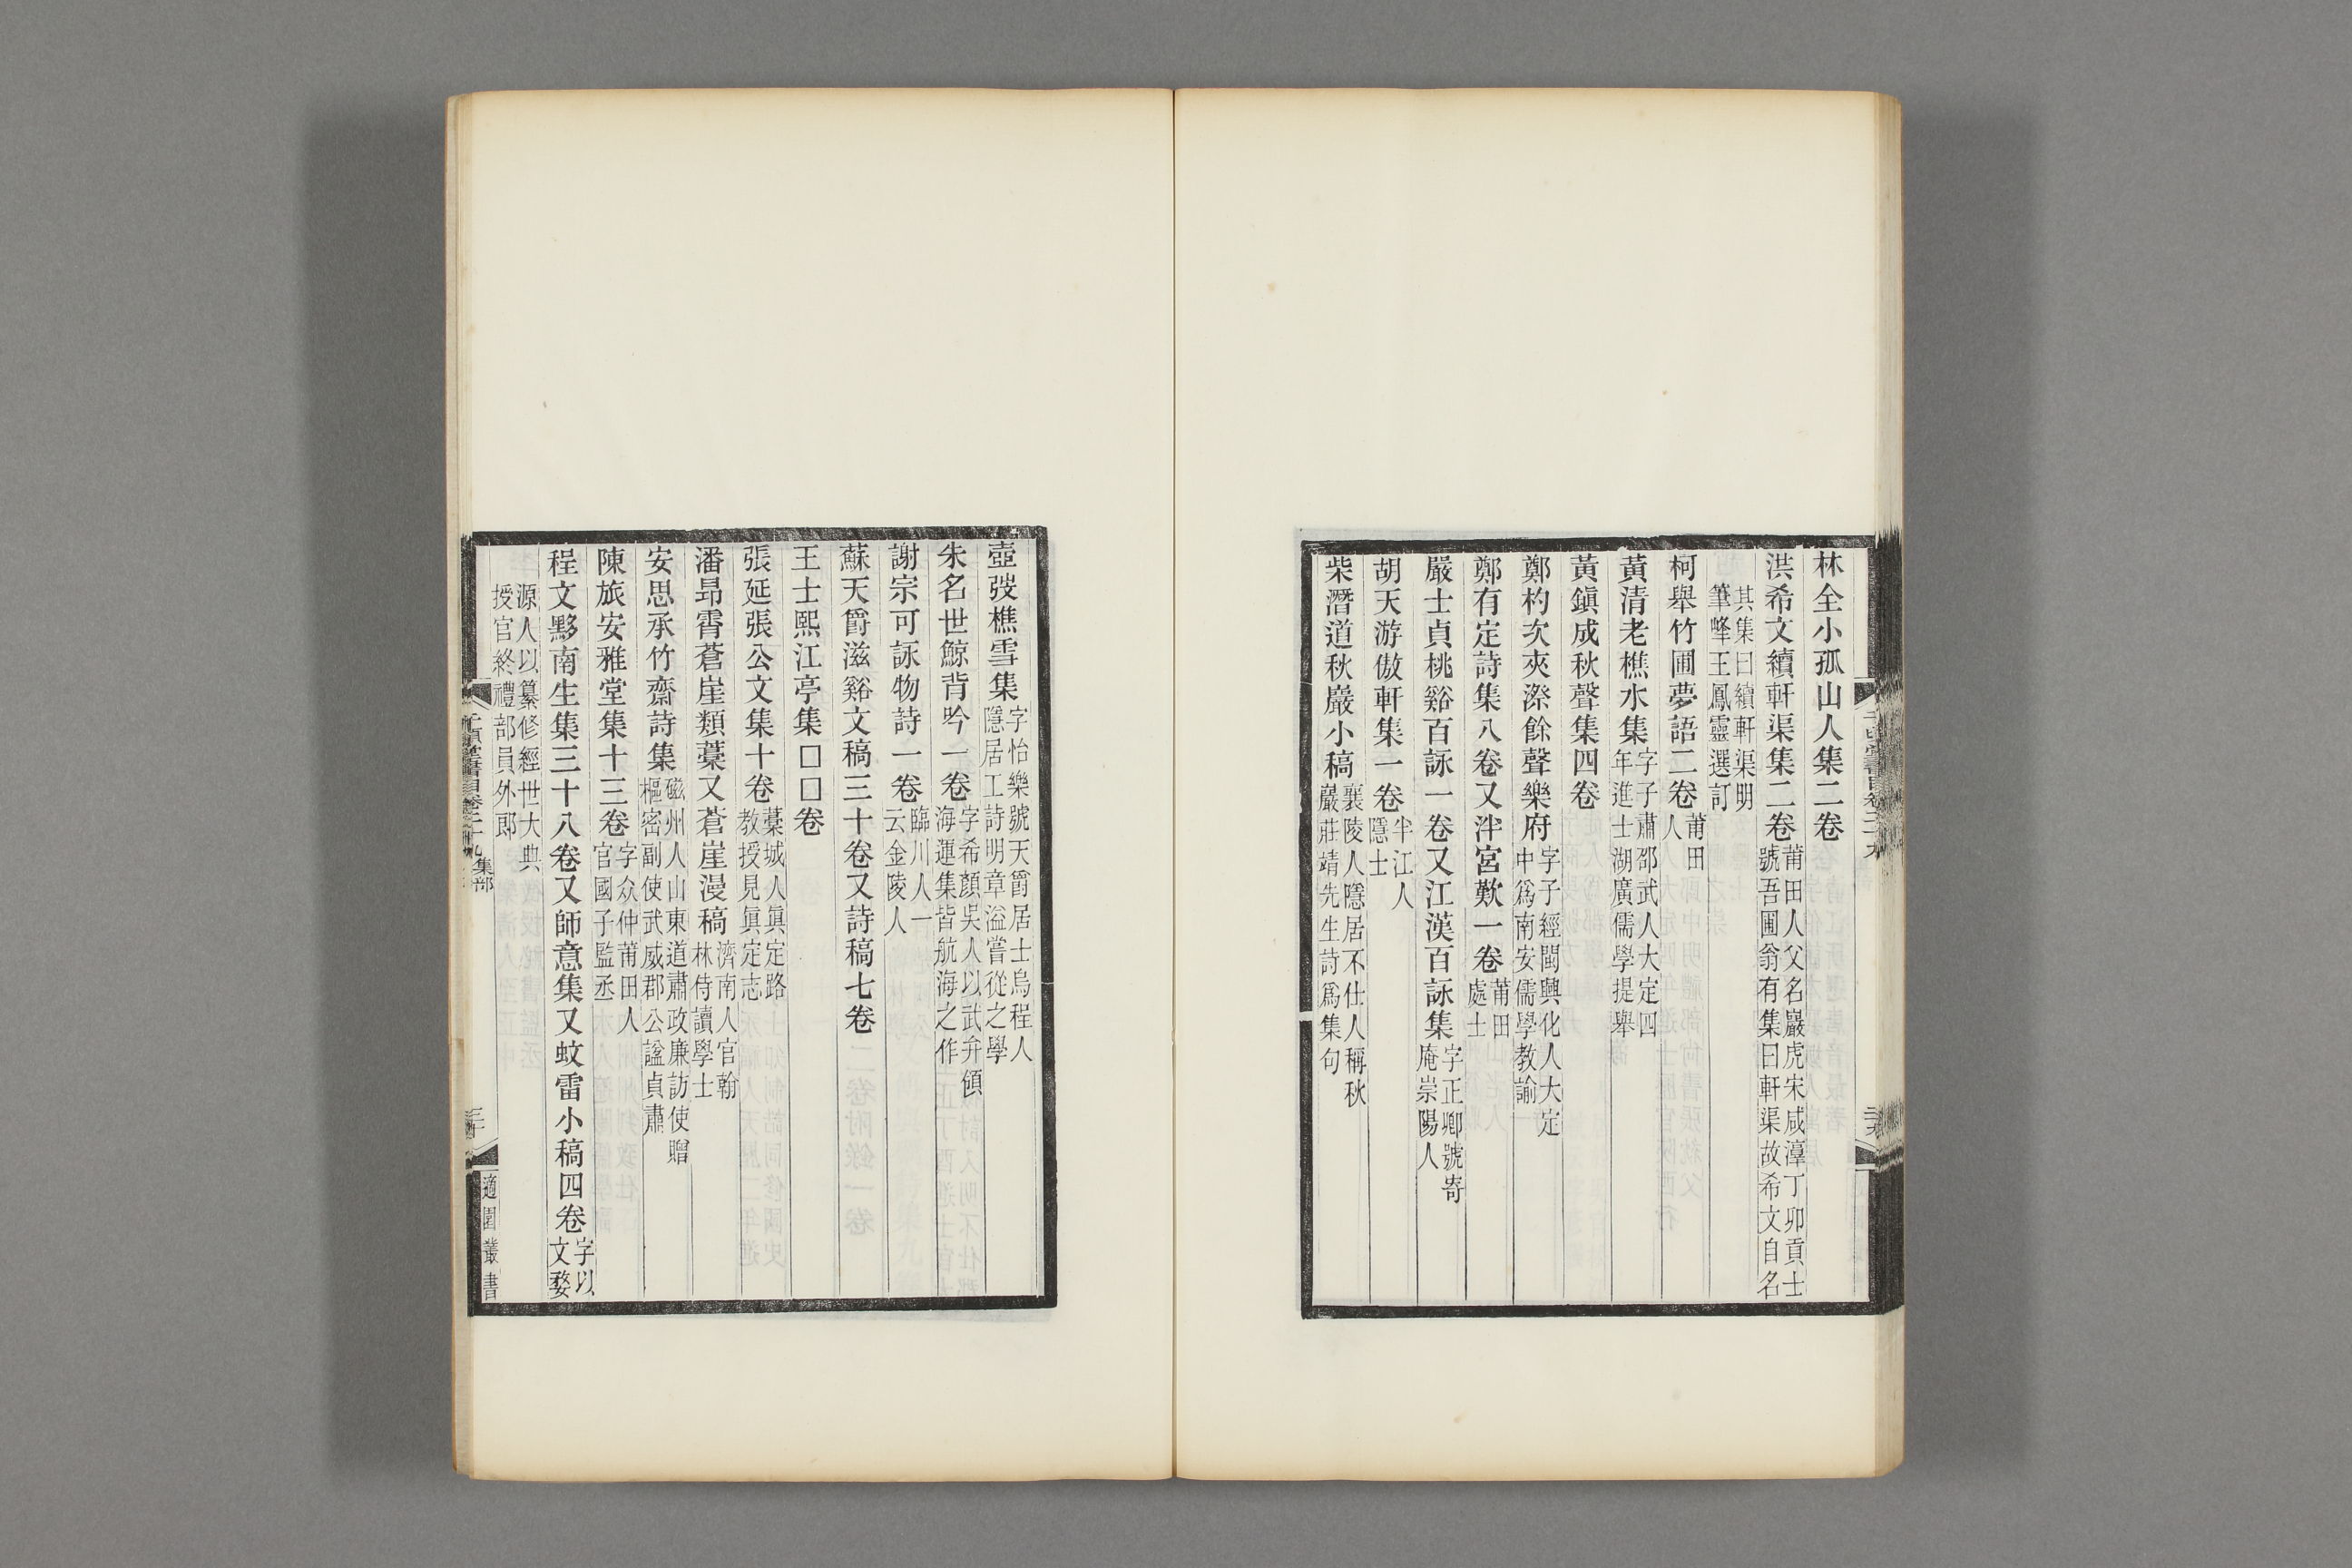 林全小孤山人集二卷
洪希文續軒渠集二卷莆田人父名巖虎宋咸淳丁卯貢士
號吾圃翁有集曰軒渠故希文自名
其集曰續軒渠明
筆峰王鳳靈選訂
柯舉竹圃夢語二卷莆田
人
黃清老樵水集字子肅邵武人大定四
年進士湖廣儒學提舉
黃鎮成秋聲集四卷
鄭杓次夾漈餘聲樂府字子經閩興化人大定
中爲南安儒學教諭
鄭有定詩集八卷又泮宮歎一卷莆田
處士
嚴士貞桃谿百詠一卷又江漢百詠集字正卿號寄
庵崇陽人
胡天游傲軒集一卷半江人
隱士
柴潛道秋巖小稿襄陵人隱居不仕人稱秋
巖莊靖先生詩爲集句
壺弢樵雪集字怡樂號天爵居士烏程人
隱居工詩明章溢嘗從之學
朱名世鯨背吟一卷字希顏吳人以武弁領
海運集皆航海之作
謝宗可詠物詩一卷臨川人一
云金陵人
蘇天爵滋谿文稿三十卷又詩稿七卷
王士熙江亭集□□卷
張延張公文集十卷藁城人眞定路
教授見眞定志
潘昂霄蒼崖類藁又蒼崖漫稿濟南人官翰
林侍讀學士
安思承竹齋詩集磁州人山東道肅政廉訪使贈
樞密副使武威郡公諡貞肅
陳旅安雅堂集十三卷字众仲莆田人
官國子監丞
程文黟南生集三十八卷又師意集又蚊雷小稿四卷字以
文婺
源人以纂修經世大典
授官終禮部員外郎
集部
三十
適園叢書